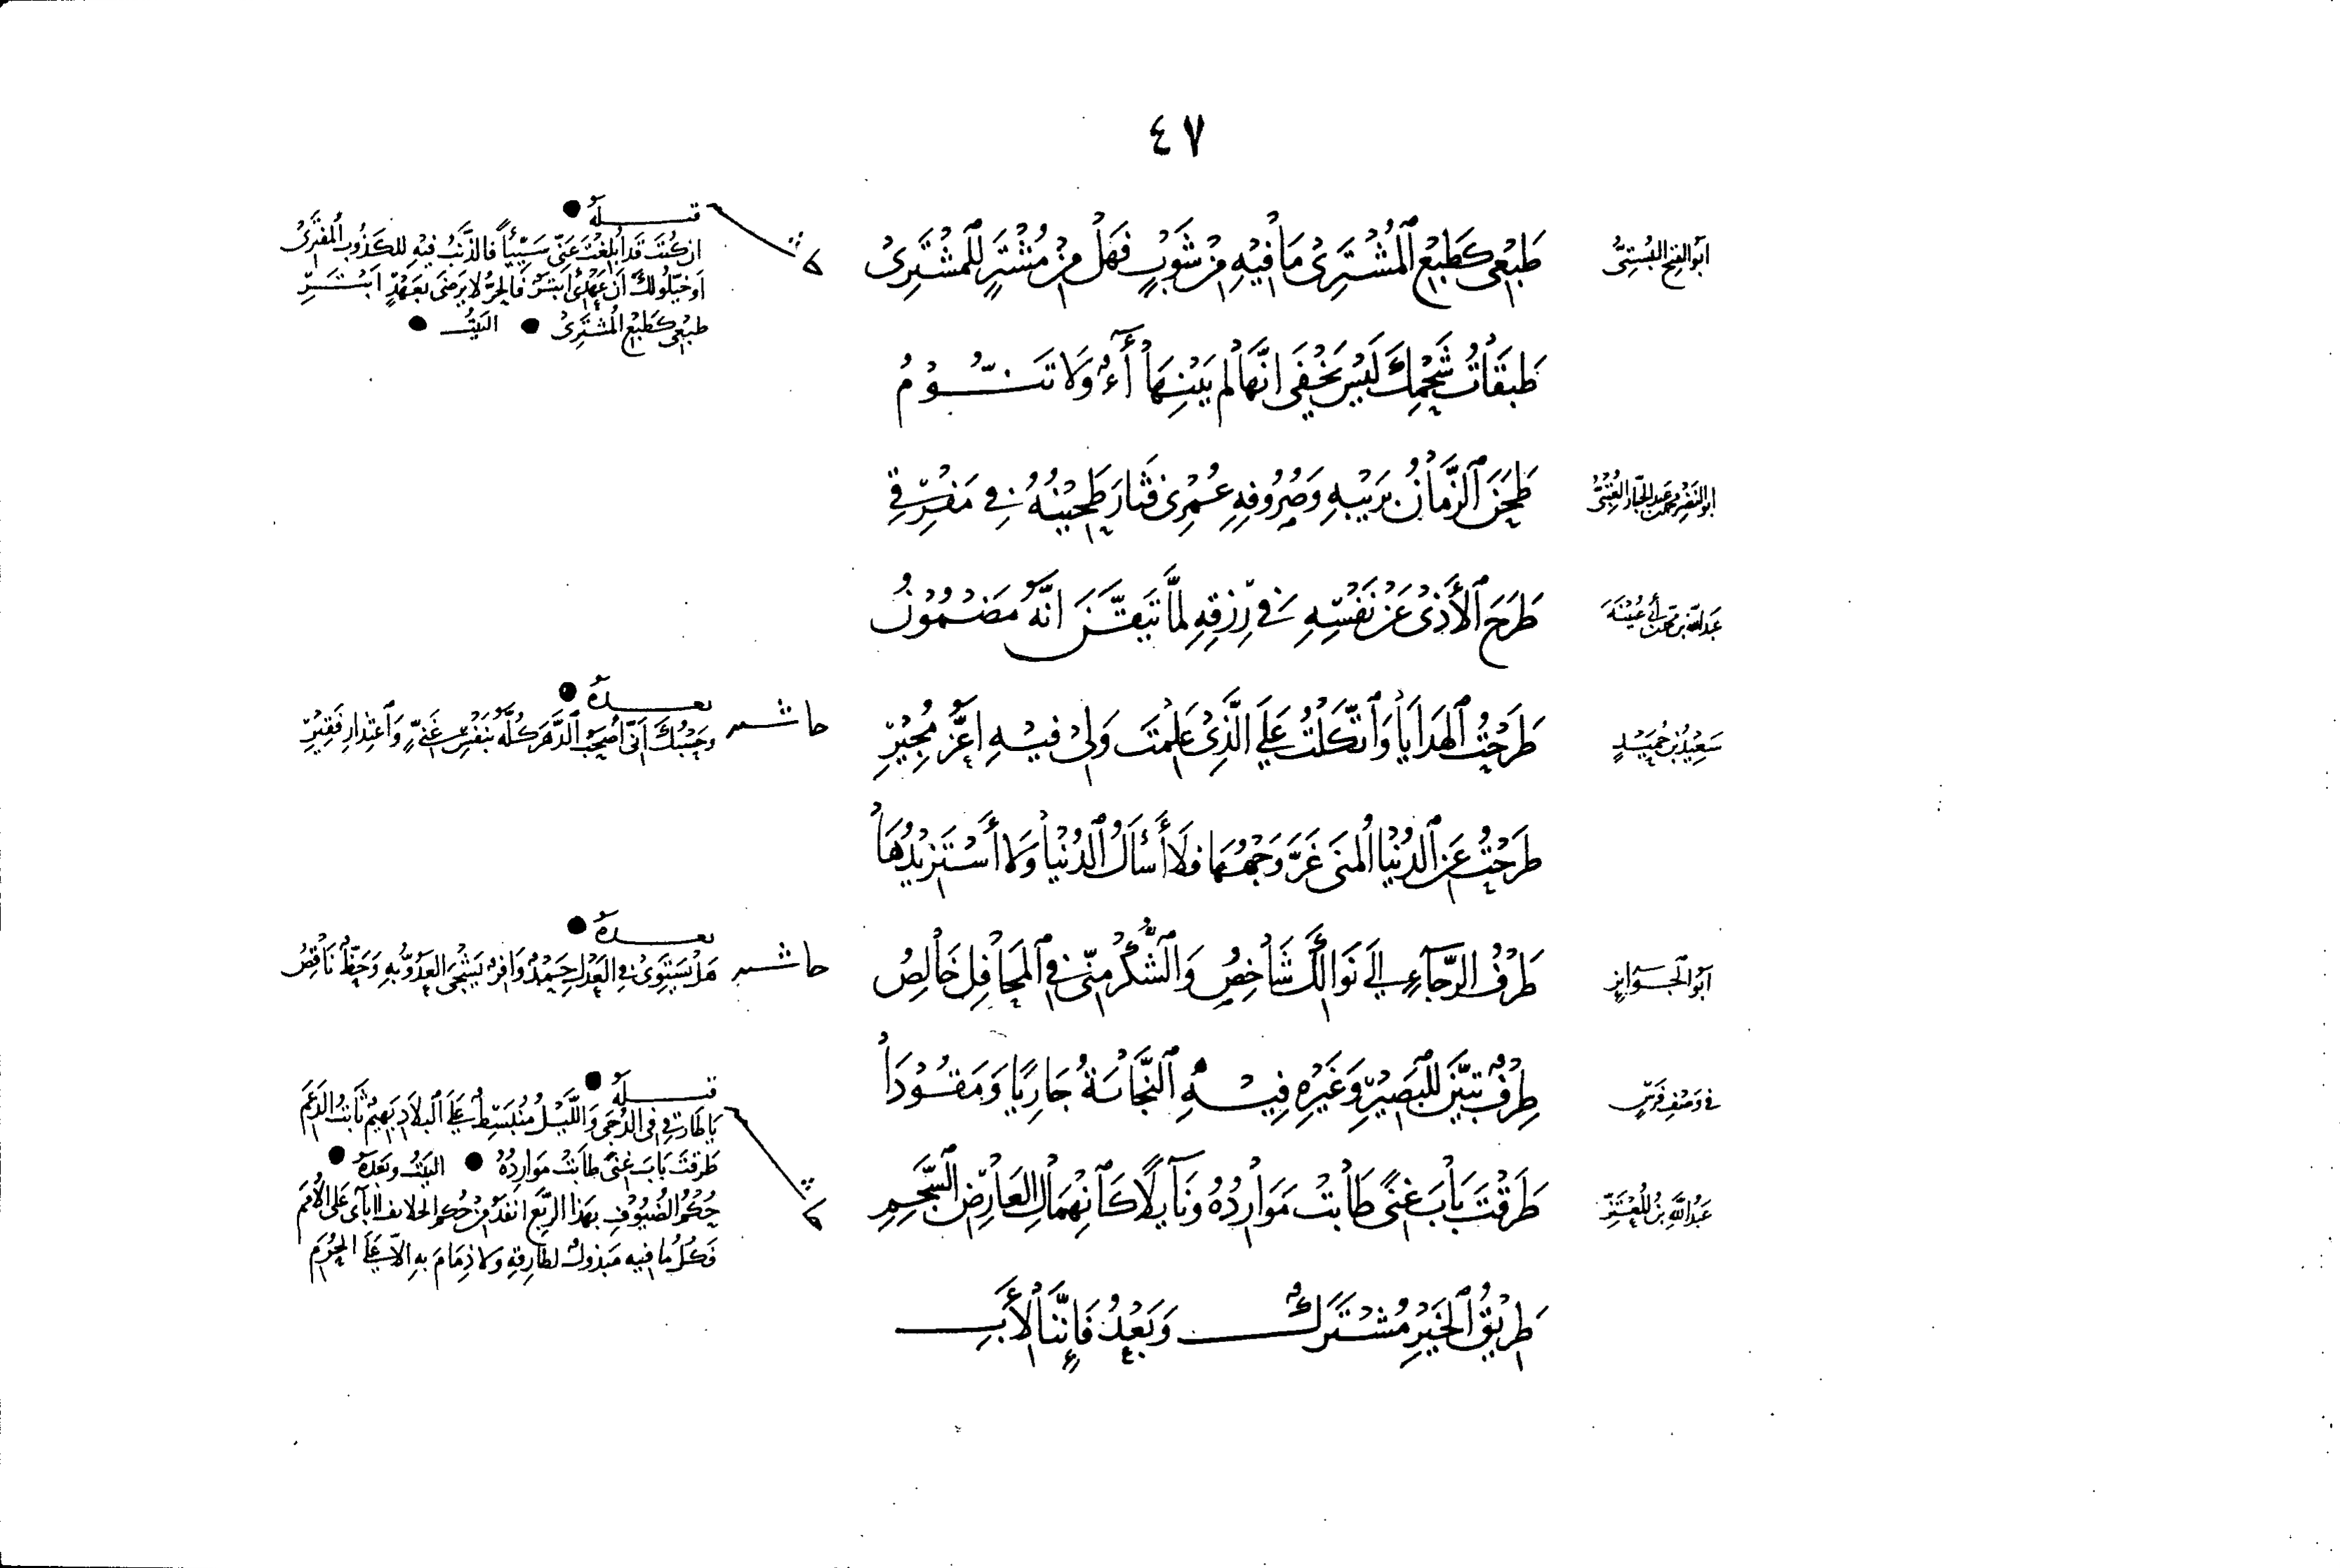 ٤٧
أبو الفتح البستي
طَبْعِي كَطَبْعِ الْمُشْتَرِي مَا فِيهِ مِنْ شَوْبٍ فَهَلْ مِنْ مُشْتَرٍ لِلْمُشْتَرِي
قبله
ان كُنْتَ قَد أُبْلِغْتَ عَنِّي سَيِّئاً فالذَّنْبُ فِيهِ للكَذُوبِ الْمُفْتَرِي
اَو خَيَّلُوا لك أَنَّ عَهْدِي أَبْتَرٌ فَالْحُرُّ لا يَرْضَى بِعَهْدٍ أَبْتَرِ
طَبْعِي كَطَبْعِ الْمُشْتَرِي البَيْتُ
طَبَقَاتُ شَحْمِكَ لَيْسَ يَخْفَى انَّهَا لَم يَبْنِهَا أَءٌ وَلَا تَنُّومُ
ابو النضر محمد بن عبد الجبار العتبي
طَحَنَ الزَّمَانُ بِرَيْبِهِ وَصُرُوفِهِ عُمْرِي فَثَارَ طَحِيْنُهُ فِي مَفْرِقِي
عبد الله بن محمد بن أبي عُيَيْنَةَ
طَرَحَ الْأَذَى عَنْ نَفْسِهِ فِي رِزْقِهِ لَمَّا تَيَقَّنَ انَّهُ مَضْمُونُ
سَعِيْدُ بْنُ حُمَيْدٍ
طَرَحْتُ الْهَدَايَا وَاتَّكَلْتُ عَلَى الَّذِي عَلِمْتَ وَلِي فِيهِ أعَزُّ مُجِيْرِ
حاشية
بعده
وحَسْبُكَ انِّي أصْحَبُ الدَّهْرَ كُلَّهُ بِنَفْسِ غَنِيٍّ وَاعْتِذَارِ فَقِيْرِ
طَرَحْتُ عَنِ الدُنْيَا الْمُنَى غَرَّ وَجْهُهَا فَلَا أَسْأَلُ الدُنْيَا وَلَا أَسْتَزِيْدُهَا
أبو الجوائز
طَرْفُ الرَّجَاءِ إلَى نَوَالِكَ شَاخِصٌ وَالشُّكْرُ مِنِّي فِي الْمَحَافِلِ خَالِصُ
حاشية
بعده
هَلْ يَسْتَوِي فِي العَدْلِ حَمْدٌ وَافِرٌ يَشْجَى العَدُوُّ بِهِ وَحَظٌّ نَاقِصُ
في وصف فرس
طِرْفٌ تَبَيَّنَ لِلْبَصِيْرِ وَغَيْرِهِ فِيهِ النَّجَابَةُ جَارِيًا وَمَقُوْدَا
عَبْدُ اللَّهِ بْنُ الْمُعْتَزِّ
طَرَقْتَ بَابَ غِنىً طَابَتْ مَوَارِدُهُ وَنَايلًا كَانْهِمَالِ العَارِضِ السَّجِمِ
قبله
يَا طَارِقِي فِي الدُّجَى وَاللَّيْلُ مُنْبَسِطٌ عَلَى الْبِلَادِ بَهِيْمٌ ثَابِتُ الدَّعَمِ
طَرَقْتَ بَابَ غِنىً طَابَتْ مَوَارِدُهُ البَيْتُ وَبَعْدَهُ
حُكْمُ الضُيُوفِ بِهَذَا الرَّبْعِ انْفَذُ مِنْ حُكْمِ الخلائف آبَآئِي عَلَى الأُمَمِ
فَكُلُّ مَا فِيهِ مَبْذُولٌ لِطَارِقِهِ وَلَا ذِمَامَ بِهِ إلّا عَلَى الْحُرَمِ
طَرِيْقُ الْخَيْرِ مُشْتَرَكٌ وَبَعْدُ فَإِنَّنَا لِأَبِ